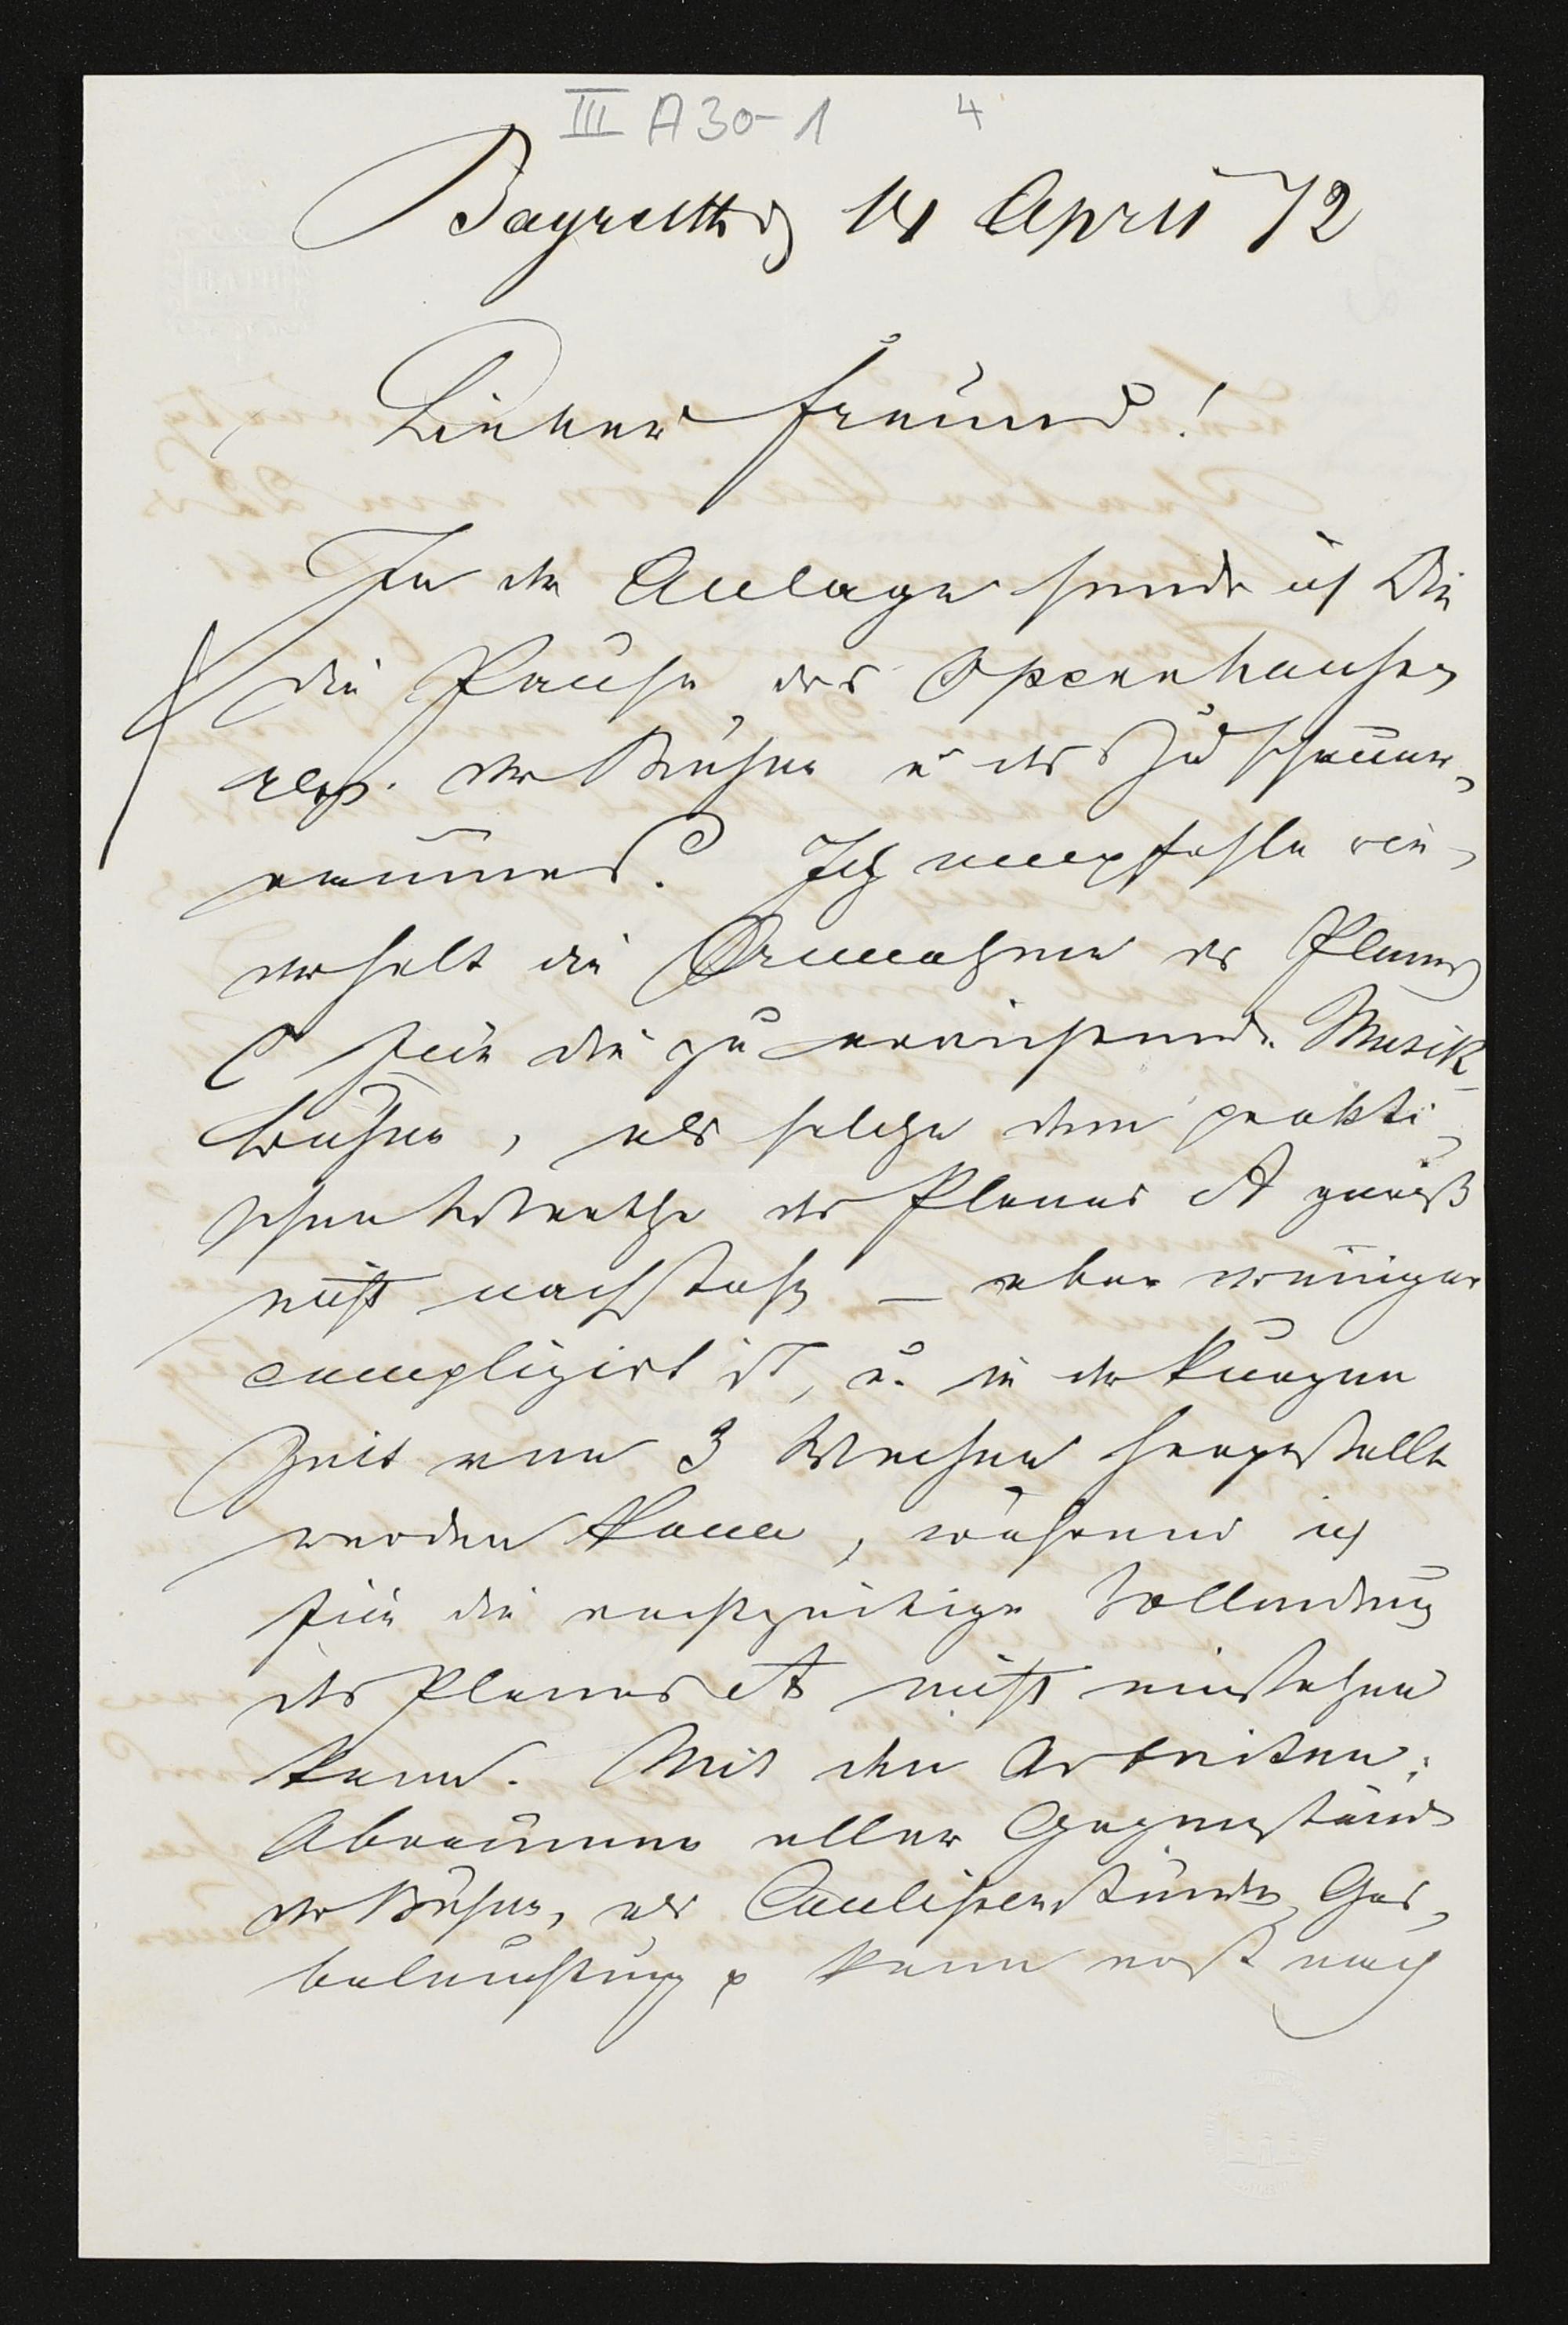 III A 30-1 4
Bayreuth d 14 April 72
Lieber Freund!
In der Anlage sende ich Dir
die Pause des Opernhauses
resp. der Bühne u des Zuschauer-
raumes. Ich empfehle wie-
derholt die Annahme des Planes
C für die zu errichtende Musik-
bühne, als solche dem prakti-
schen Werthe des Planes A gewiß
nicht nachsteht – aber weniger
complizirt ist, u. in der kurzen
Zeit von 3 Wochen hergestellt
werden kann, während ich
für die rechtzeitige Vollendung
des Planes A nicht einstehen
kann. Mit den Arbeiten:
Abräumen aller Gegenstände
der Bühne, als Coulissenstände, Gas-
beleuchtung kann erst nach